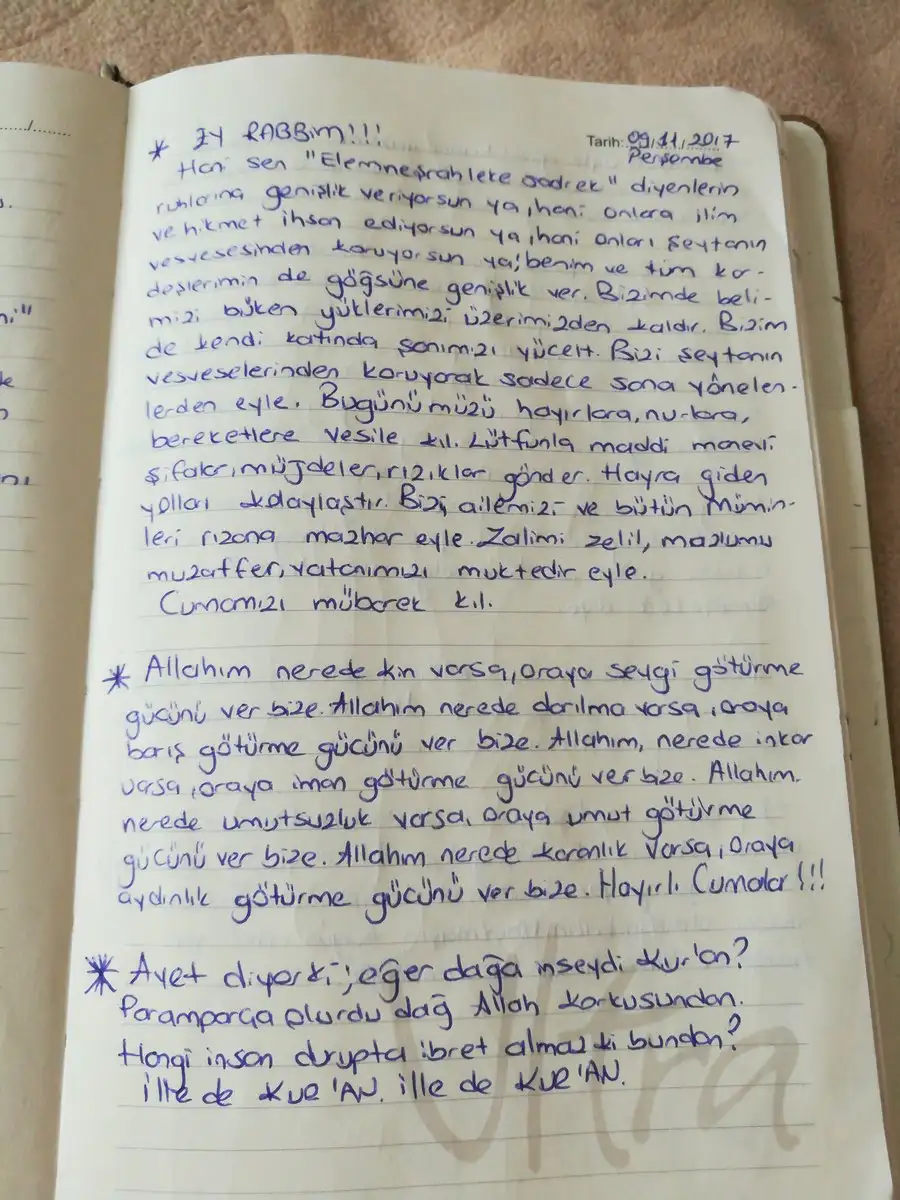 .../........
"
Tarih: 09/11/2017
Perşembe
* EY RABBİM!!!
Hani sen "Elemneşrahleke sadrek" diyenlerin
ruhlarına genişlik veriyorsun ya, hani onlara ilim
ve hikmet ihsan ediyorsun ya, hani onları şeytanın
vesvesesinden koruyorsun ya; benim ve tüm kar-
deşlerimin de göğsüne genişlik ver. Bizimde beli-
mizi büken yüklerimizi üzerimizden kaldır. Bizim
de kendi katında şanımızı yücelt. Bizi şeytanın
vesveselerinden koruyarak sadece sana yönelen-
lerden eyle. Bugünümüzü hayırlara, nurlara,
bereketlere vesile kıl. Lütfunla maddi manevi
şifalar, müjdeler, rızıklar gönder. Hayra giden
yolları kolaylaştır. Bizi, ailemizi ve bütün mümin-
leri rızana mazhar eyle. Zalimi zelil, mazlumu
muzaffer, vatanımızı muktedir eyle.
Cumamızı mübarek kıl.
* Allahım nerede kin varsa, oraya sevgi götürme
gücünü ver bize. Allahım nerede darılma varsa, oraya
barış götürme gücünü ver bize. Allahım, nerede inkar
varsa, oraya iman götürme gücünü ver bize. Allahım.
nerede umutsuzluk varsa, oraya umut götürme
gücünü ver bize. Allahım nerede karanlık varsa, oraya
aydınlık götürme gücünü ver bize. Hayırlı Cumalar!!!
* Ayet diyorki; eğer dağa inseydi Kur'an?
Paramparça olurdu dağ Allah korkusundan.
Hangi insan durupta ibret almaz ki bundan?
İlle de KUR'AN. ille de KUR'AN.